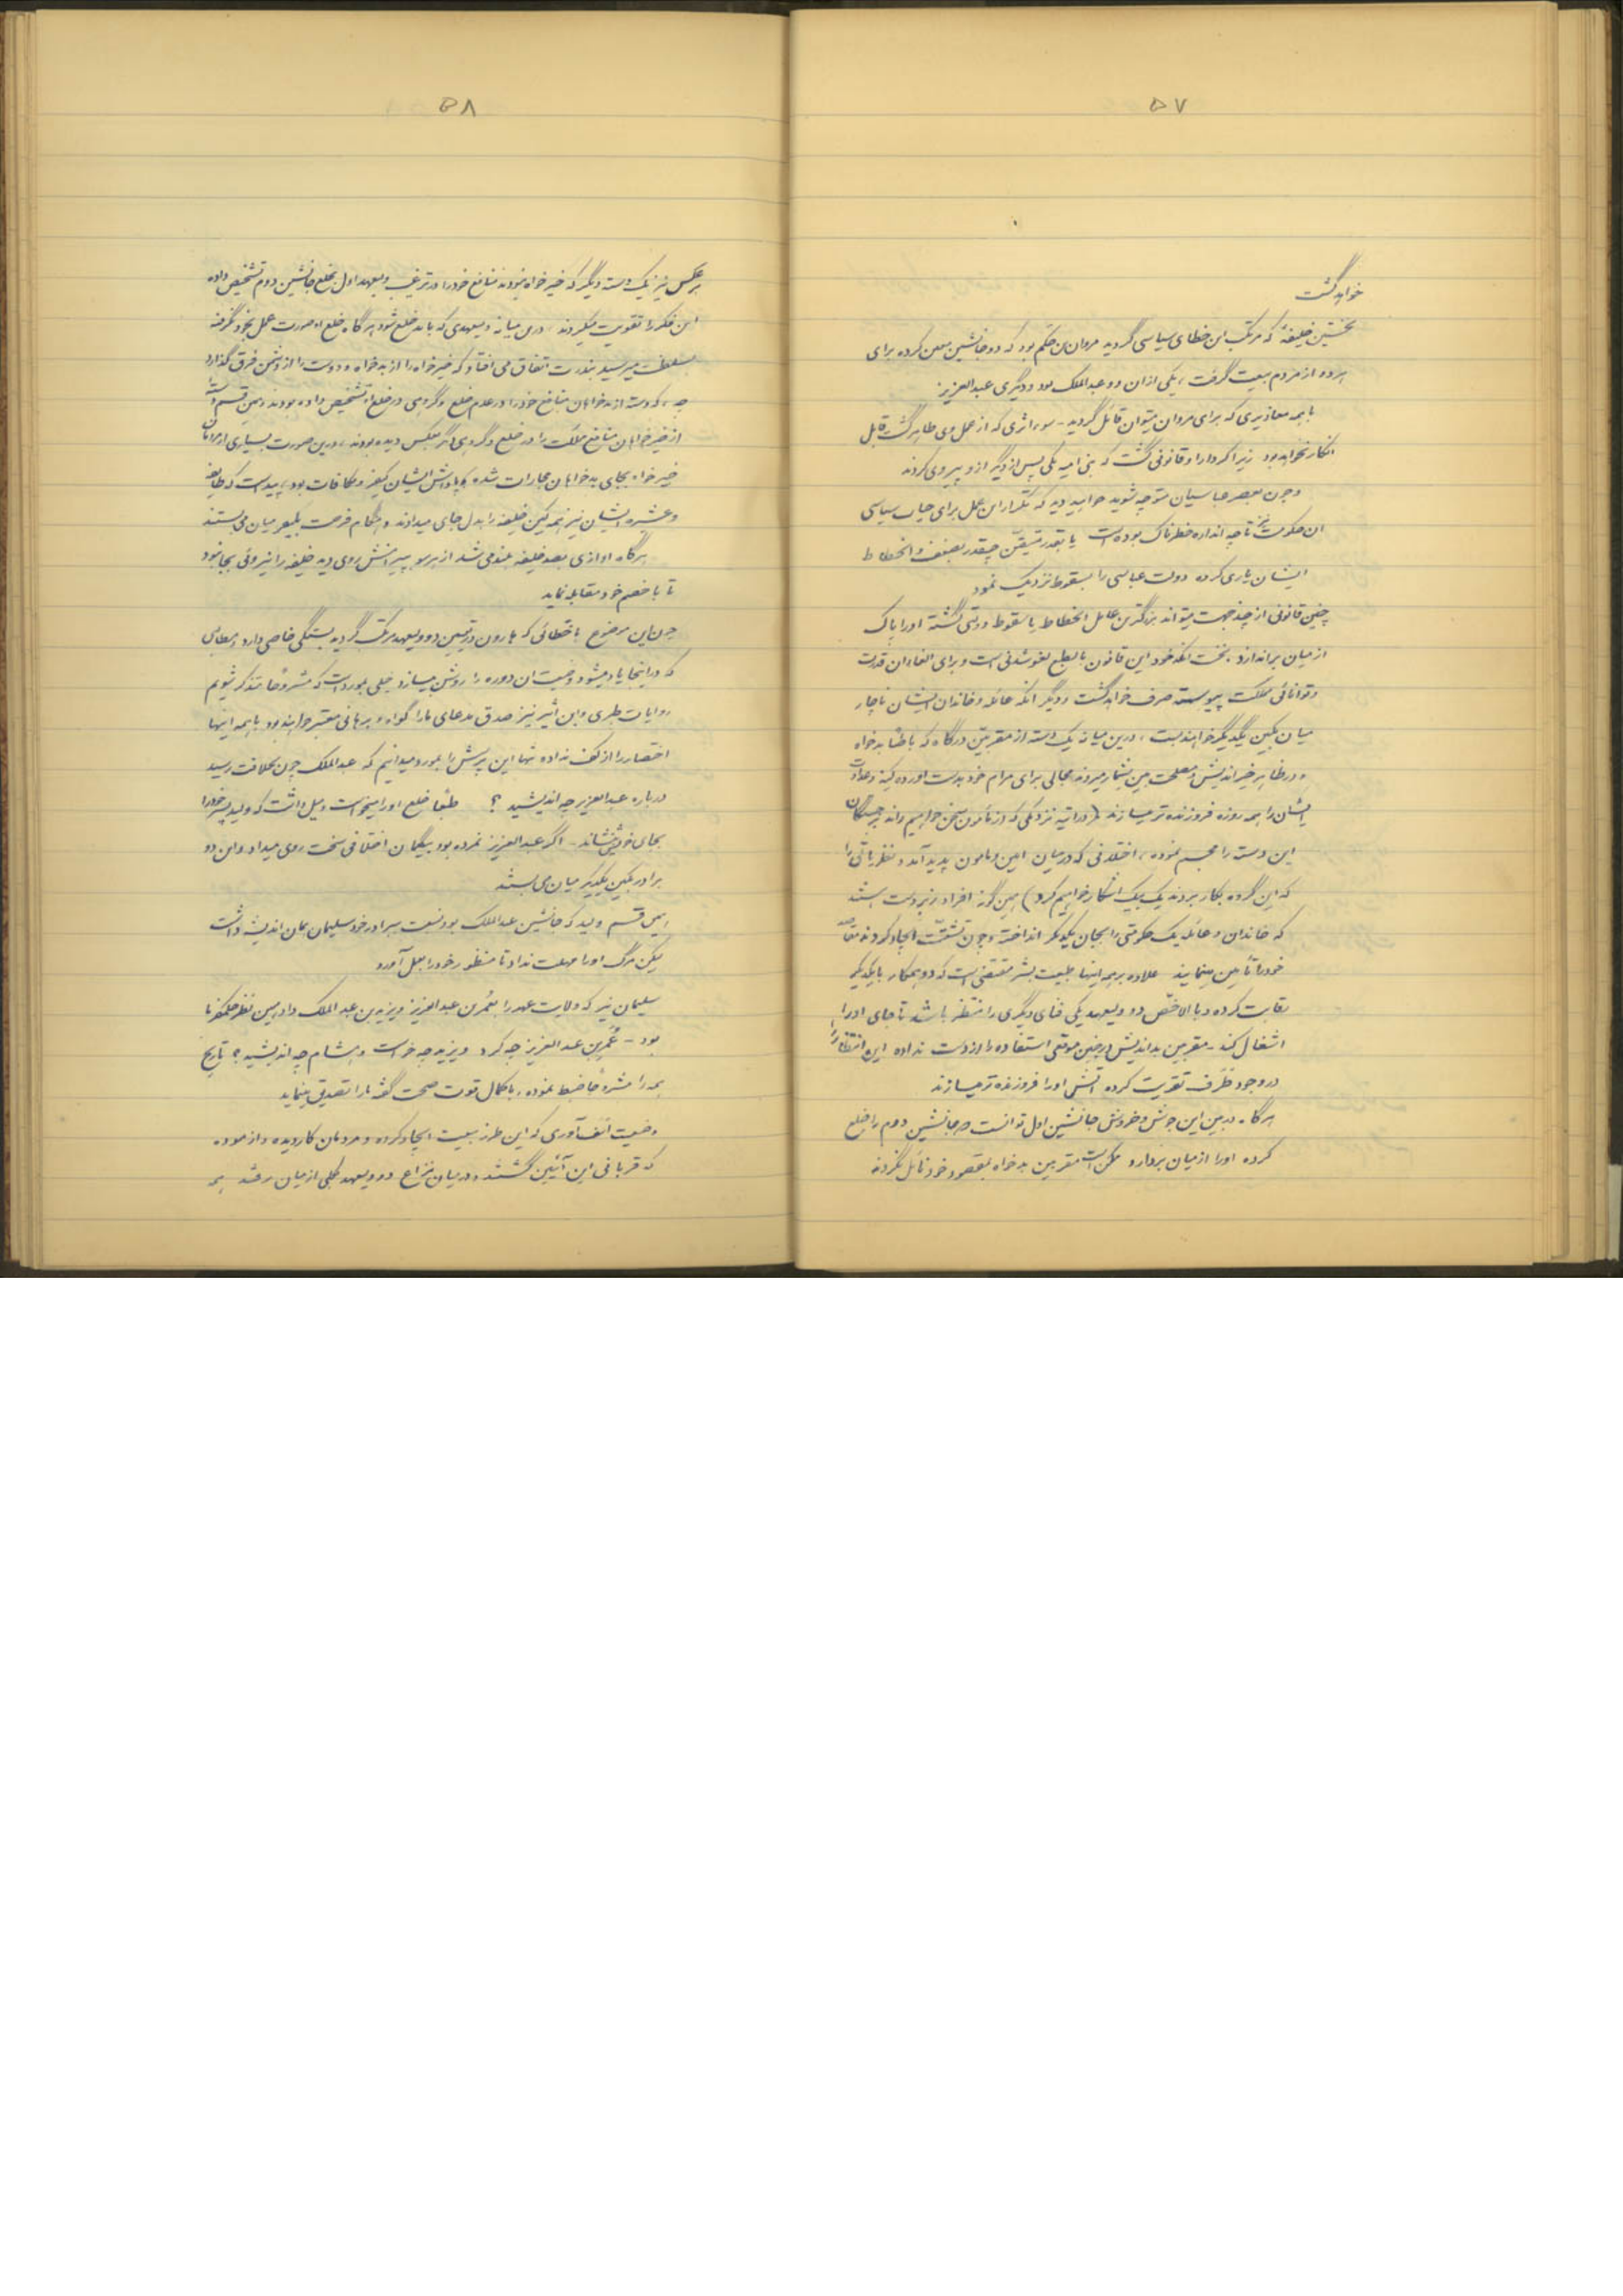 ۵۷
خواهد گشت
نخستین خلیفهٔ که مرتکب این خطای سیاسی گردید مروان بن حکم بود که دو جانشین معین کرده برای
هر دو از مردم بیعت گرفت، یکی از ان دو عبدالملک بود و دیگری عبدالعزیز
با همه معاذیری که برای مروان میتوان قائل گردید - سوء اثری که از عمل وی ظاهر گشت قابل
انکار نخواهد بود زیرا کردار او قانونی گشت که بنی امیه یکی پس از دیگر از او پیروی کردند
و چون بعصر عباسیان متوجه شوید خواهید دید که تکرار این عمل برای حیات سیاسی
ان حکومت نیز تا چه اندازه خطرناک بوده است یا بقدر متیقّن چقدر بضعف و انحطاط
ایشان یاری کرده دولت عباسی را بسقوط نزدیک نمود
چنین قانونی از چند جهت میتواند بزرگترین عامل انحطاط یا سقوط دولتی گشته او را پاک
از میان براندازد. نخست انکه خود این قانون بالطبع لغو شدنی است و برای الغاء ان قدرت
و توانائی مملکت پیوسته صرف خواهد گشت و دیگر انکه عائله و خاندان ایشان ناچار
میان بکین یکدیگر خواهند بست، درین میانه یک دسته از مقربین درگاه که باطنًا بدخواه
و در ظاهر خیراندیش و مصلحت بین بشمار میروند مجالی برای مرام خود بدست اورده کینه و عداوت
ایشان را همه روزه فروزنده تر میسازند (در اتیه نزدیکی که از مأمون سخن خواهیم راند برجستگان
این دسته را مجسم نموده، اختلافی که در میان امین و مامون پدید آمد و نظریاتی را
که این گروه بکار بردند یک بیک اشکار خواهیم کرد) همین گونه افراد زبردست هستند
که خاندان و عائله یک حکومتی را بجان یکدیگر انداخته و چون تشتّت ایجاد کردند مقاصد
خود را تأمین مینمایند علاوه بر همه اینها طبیعت بشر مقتضی است که دو همکار با یکدیگر
رقابت کرده و بالاخصّ دو ولیعهد یکی فنای دیگری را منتظر باشد تا جای او را
اشغال کند - مقربین بداندیش در چنین موقعی استفاده را از دست نداده این انتظار را
در وجود طرف تقویت کرده آتش او را فروزنده تر میسازند
هرگاه در بین این جوش و خروش جانشین اول توانست جانشین دوم را خلع
کرده او را از میان بردارد ممکن است مقربین بدخواه بمقصود خود نائل نگردند
۵۸
بر عکس نیز یک دسته دیگر که خیرخواه نبودند منافع خود را در ترغیب ولیعهد اول بخلع جانشین دوم تشخیص داده
این فکر را تقویت میکردند، درین میانه ولیعهدی که باید خلع شود هرگاه خلع او صورت عمل بخود نگرفته
بسلطنت میرسید بندرت اتفاق می افتاد که خیرخواه را از بدخواه و دوست را از دشمن فرق گذارد
چه، یکدسته از بدخواهان منافع خود را در عدم خلع و گروهی در خلع او تشخیص داده بودند و همین قسم
از خیرخواهان منافع مملکت را در خلع و گروهی دیگر بعکس دیده بودند، درین صورت بسیاری از مردمان
خیرخواه بجای بدخواهان مجازات شده و پاداش ایشان کیفر و مکافات بود، پیداست که طایفه
و عشیره ایشان نیز همه کین خلیفه را بدل جای میدادند و هنگام فرصت بکیفر میان می بستند
هرگاه اوازی بضد خلیفه بلند می شد از هر سو بپیرامنش روی دیده خلیفه را نیروئی بجا نبود
تا با خصم خود مقابله نماید
چون این موضوع با خطائی که هارون در تعیین دو ولیعهد مرتکب گردید بستگی خاصی دارد و مطالبی
که در اینجا یاد میشود وضعیت ان دوره را روشن میسازد خیلی بمورد است که مشروحًا متذکر شویم
روایات طبری و ابن أثیر نیز صدق مدعای ما را گواه و برهانی معتبر خواهند بود با همه اینها
اختصار را از کف نداده تنها این پرسش را بمورد میدانیم که عبدالملک چون بخلافت رسید
درباره عبدالعزیز چه اندیشید؟ طبعًا خلع او را میخواست و میل داشت که ولید پسر خود را
بجای خویش نشاند - اگر عبدالعزیز نمرده بود بیگمان اختلافی سخت روی میداد و این دو
برادر بکین یکدیگر میان می بستند
همین قسم ولید که جانشین عبدالملک بود نسبت ببرادر خود سلیمان همان اندیشه داشت
لیکن مرگ او را مهلت نداد تا منظور خود را بعمل آورد
سلیمان نیز که ولایت عهد را بعُمر بن عبدالعزیز و یزید بن عبدالملک داد همین نظر حکمفرما
بود - عُمر بن عبدالعزیز چه کرد و یزید چه خواست و هشام چه اندیشید؟ تاریخ
همه را مشروحًا ضبط نموده، با کمال قوت صحت گفته ما را تصدیق مینماید
وضعیت اسف آوری که این طرز بیعت ایجاد کرده و مردمان کاردیده و ازموده
که قربانی این آئین گشتند و در میان نزاع دو ولیعهد بکلی از میان رفتند همه